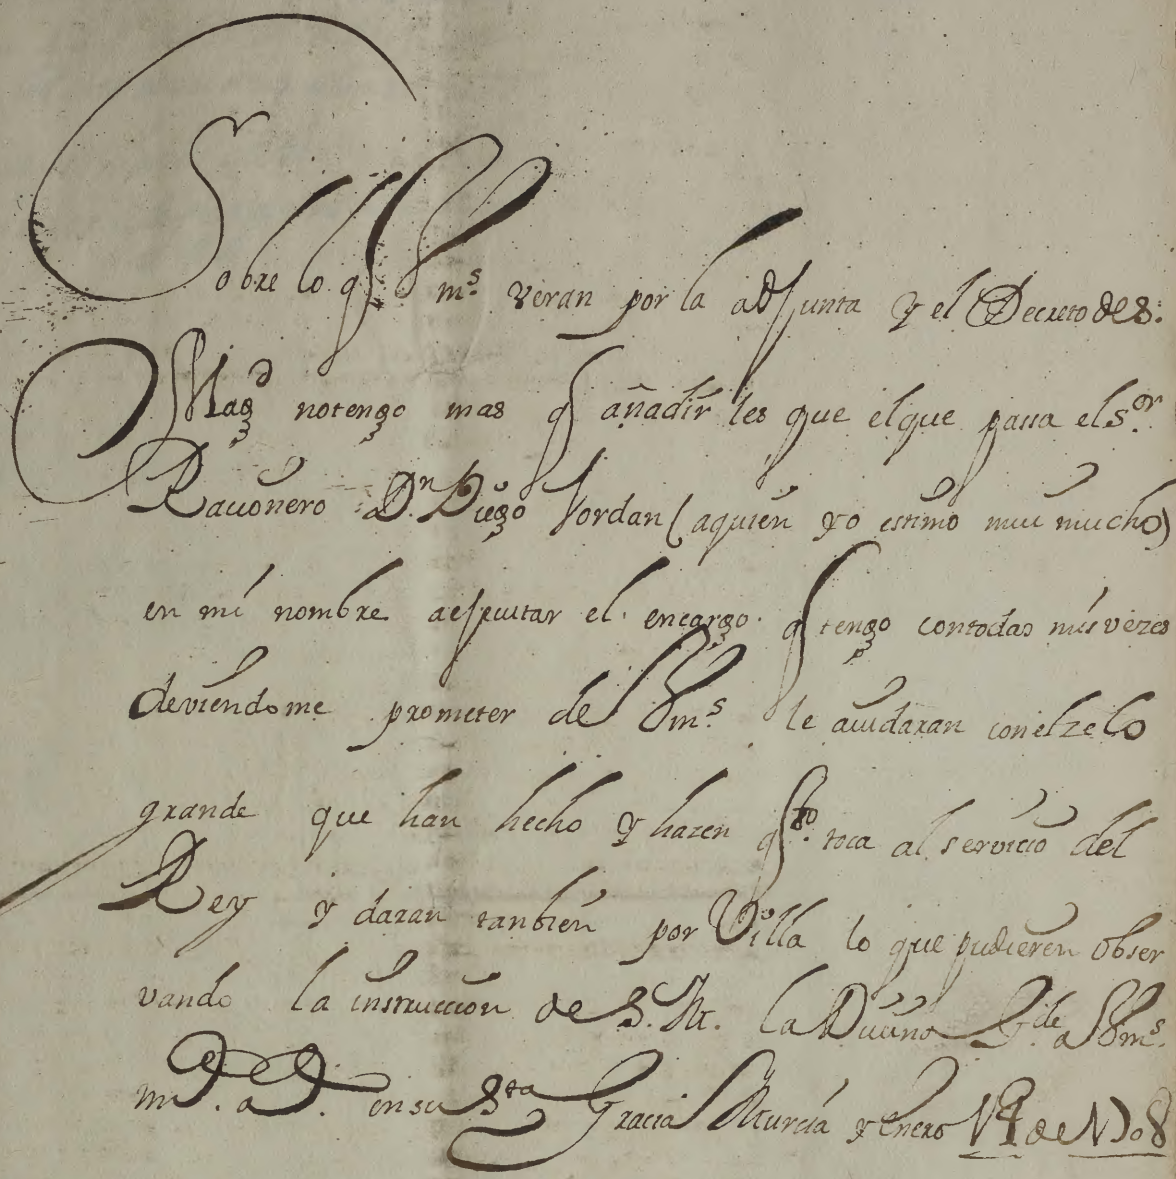 Sobre lo q Vms. veran por la adjunta y el Decreto de S.
Magd no tengo mas q añadir les que el que passa el Sor.
Racionero Dn. Diego Jordan (a quien yo estimo mui mucho)
en mi nombre a ejecutar el encargo q tengo con todas mis vezes
deviendome prometer de Vms. le aiudaran con el zelo
grande que han hecho y hazen qto. toca al servicio del
Rey y daran tanbien por Villa lo que pudieren obser
vando la instruccion de S. M. la Divina Gde. a Vms.
m. a. en su Sta Gracia Murcia y Enero de 1708